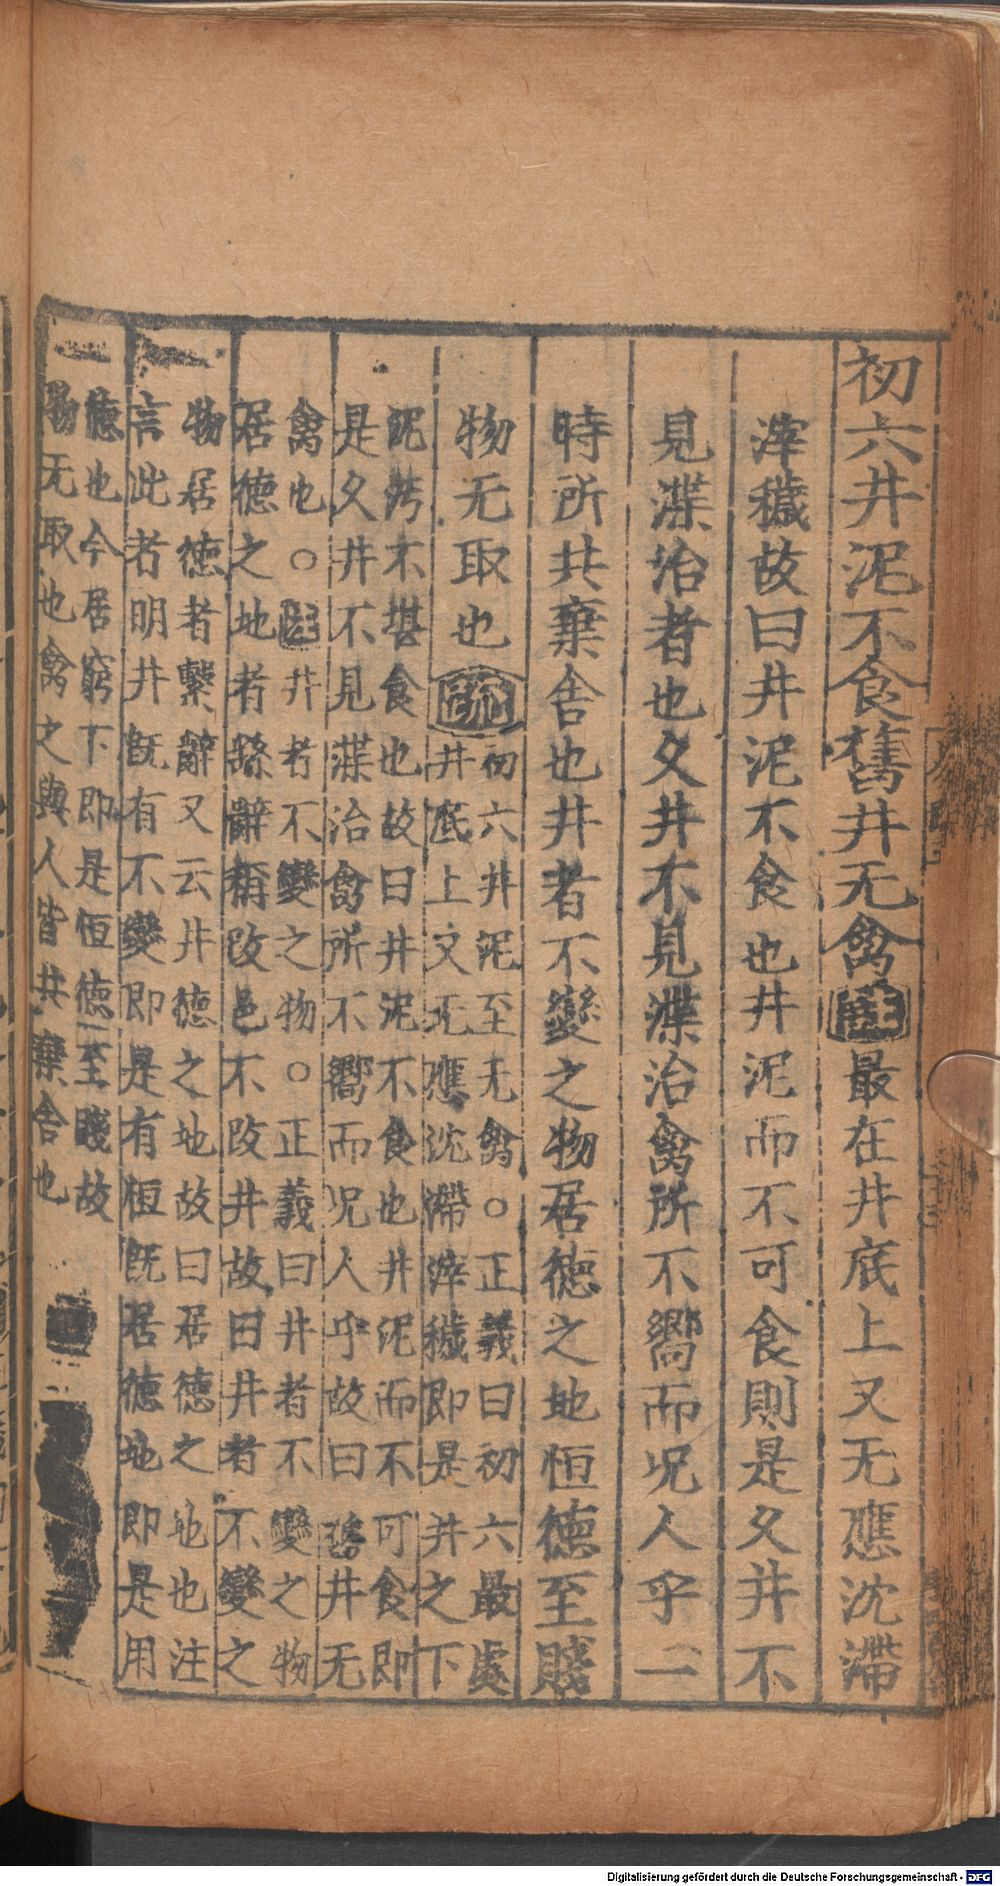 初六井泥不食舊井无禽注最在井底上又无應沈滯
滓穢故曰井泥不食也井泥而不可食則是久井不
見渫治者也久井不見渫治禽所不嚮而况人乎一
時所共棄舍也井者不變之物居德之地恒德至賤
物无取也疏
初六井泥至无禽○正義曰初六最處
井底上文无應沈滯滓穢即是井之下
泥汚不堪食也故曰井泥不食也井泥而不可食即
是久井不見渫治禽所不嚮而况人乎故曰舊井无
禽也○注井者不變之物○正義曰井者不變之物
居德之地者繇辭稱改邑不改井故曰井者不變之
物居德者繫辭又云井德之地故曰居德之地也注
言此者明井旣有不變即是有恒旣居德地即是用
德也今居窮下即是恒德至賤故
物无取也禽之與人皆共棄舍也
Digitalisierung gefördert durch die Deutsche Forschungsgemeinschaft - DFG